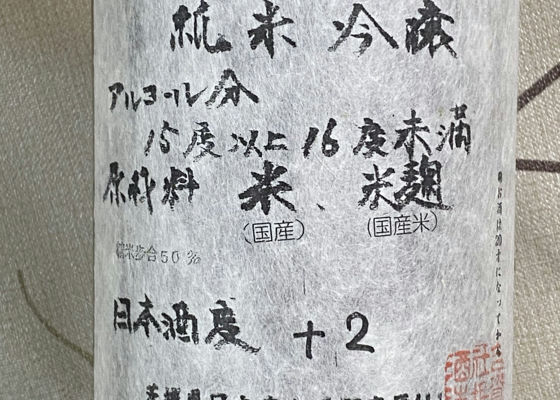 純米吟醸
アルコール分
15度以上16度未満
原材料 米、米麹
(国産) (国産米)
精米歩合50%
日本酒度 +2
お酒は20才になってから